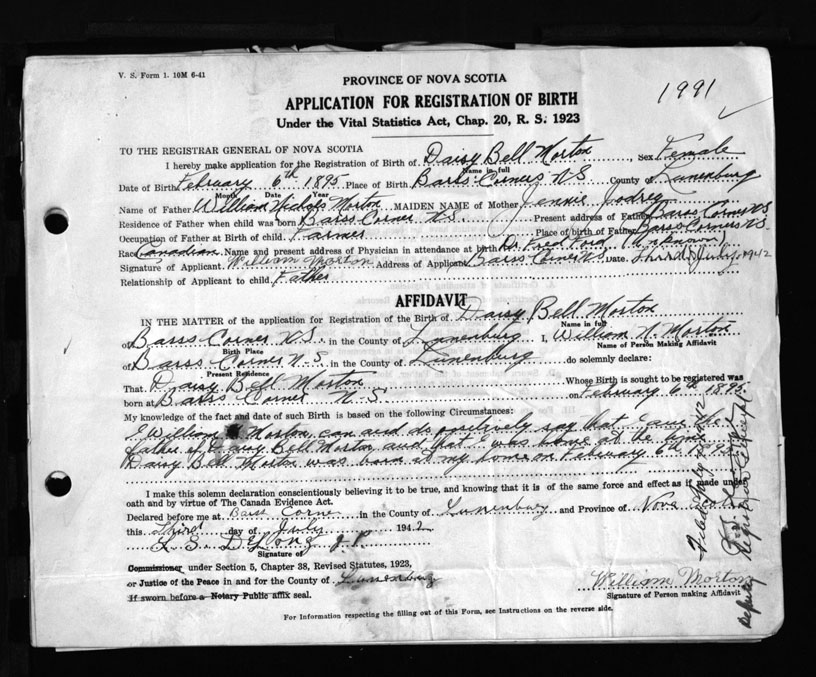 V. S. Form 1. 10M 6-41
PROVINCE OF NOVA SCOTIA
1991
APPLICATION FOR REGISTRATION OF BIRTH
Under the Vital Statistics Act, Chap. 20, R. S. 1923
TO THE REGISTRAR GENERAL OF NOVA SCOTIA
I hereby make application for the Registration of Birth of Daisy Bell Morton, Sex Female
Name in full
Date of Birth February 6th 1895 Place of Birth Barss Corners N S County of Lunenburg
Month Date Year
Name of Father William Nichols Morton MAIDEN NAME of Mother Jennie Jodrey
Residence of Father when child was born Barss Corner N.S. Present address of Father Barss Corner N S
Occupation of Father at Birth of child Farmer Place of birth of Father Barss Corner N.S.
Race Canadian Name and present address of Physician in attendance at birth Dr. Fred Ford (Unknown)
Signature of Applicant William Morton Address of Applicant Barss Corner N S Date third July 1942
Relationship of Applicant to child Father
AFFIDAVIT
IN THE MATTER of the application for Registration of the Birth of Daisy Bell Morton
Name in full
of Barss Corner N.S. in the County of Lunenburg I, William N. Morton
Birth Place Name of Person Making Affidavit
of Barss Corner N-S in the County of Lunenburg do solemnly declare:
Present Residence
That Daisy Bell Morton Whose Birth is sought to be registered was
born at Barss Corner N-S. on February 6th 1895
My knowledge of the fact and date of such Birth is based on the following Circumstances:
I William Morton, can and do positively say that I am the
father of Daisy Bell Morton, and that I was home at the time
Daisy Bell Morton was born at my home on February 6th 1895
I make this solemn declaration conscientiously believing it to be true, and knowing that it is of the same force and effect as if made under
oath and by virtue of The Canada Evidence Act.
Declared before me at Barss Corner in the County of Lunenburg and Province of Nova Scotia
this third day of July 1942
L. S. DeLong J.P.
Signature of
Commissioner under Section 5, Chapter 38, Revised Statutes, 1923,
or Justice of the Peace in and for the County of Lunenburg
If sworn before a Notary Public affix seal.
William Morton
Signature of Person making Affidavit
For Information respecting the filling out of this Form, see Instructions on the reverse side.
Filed July 1942
Deputy Registrar General